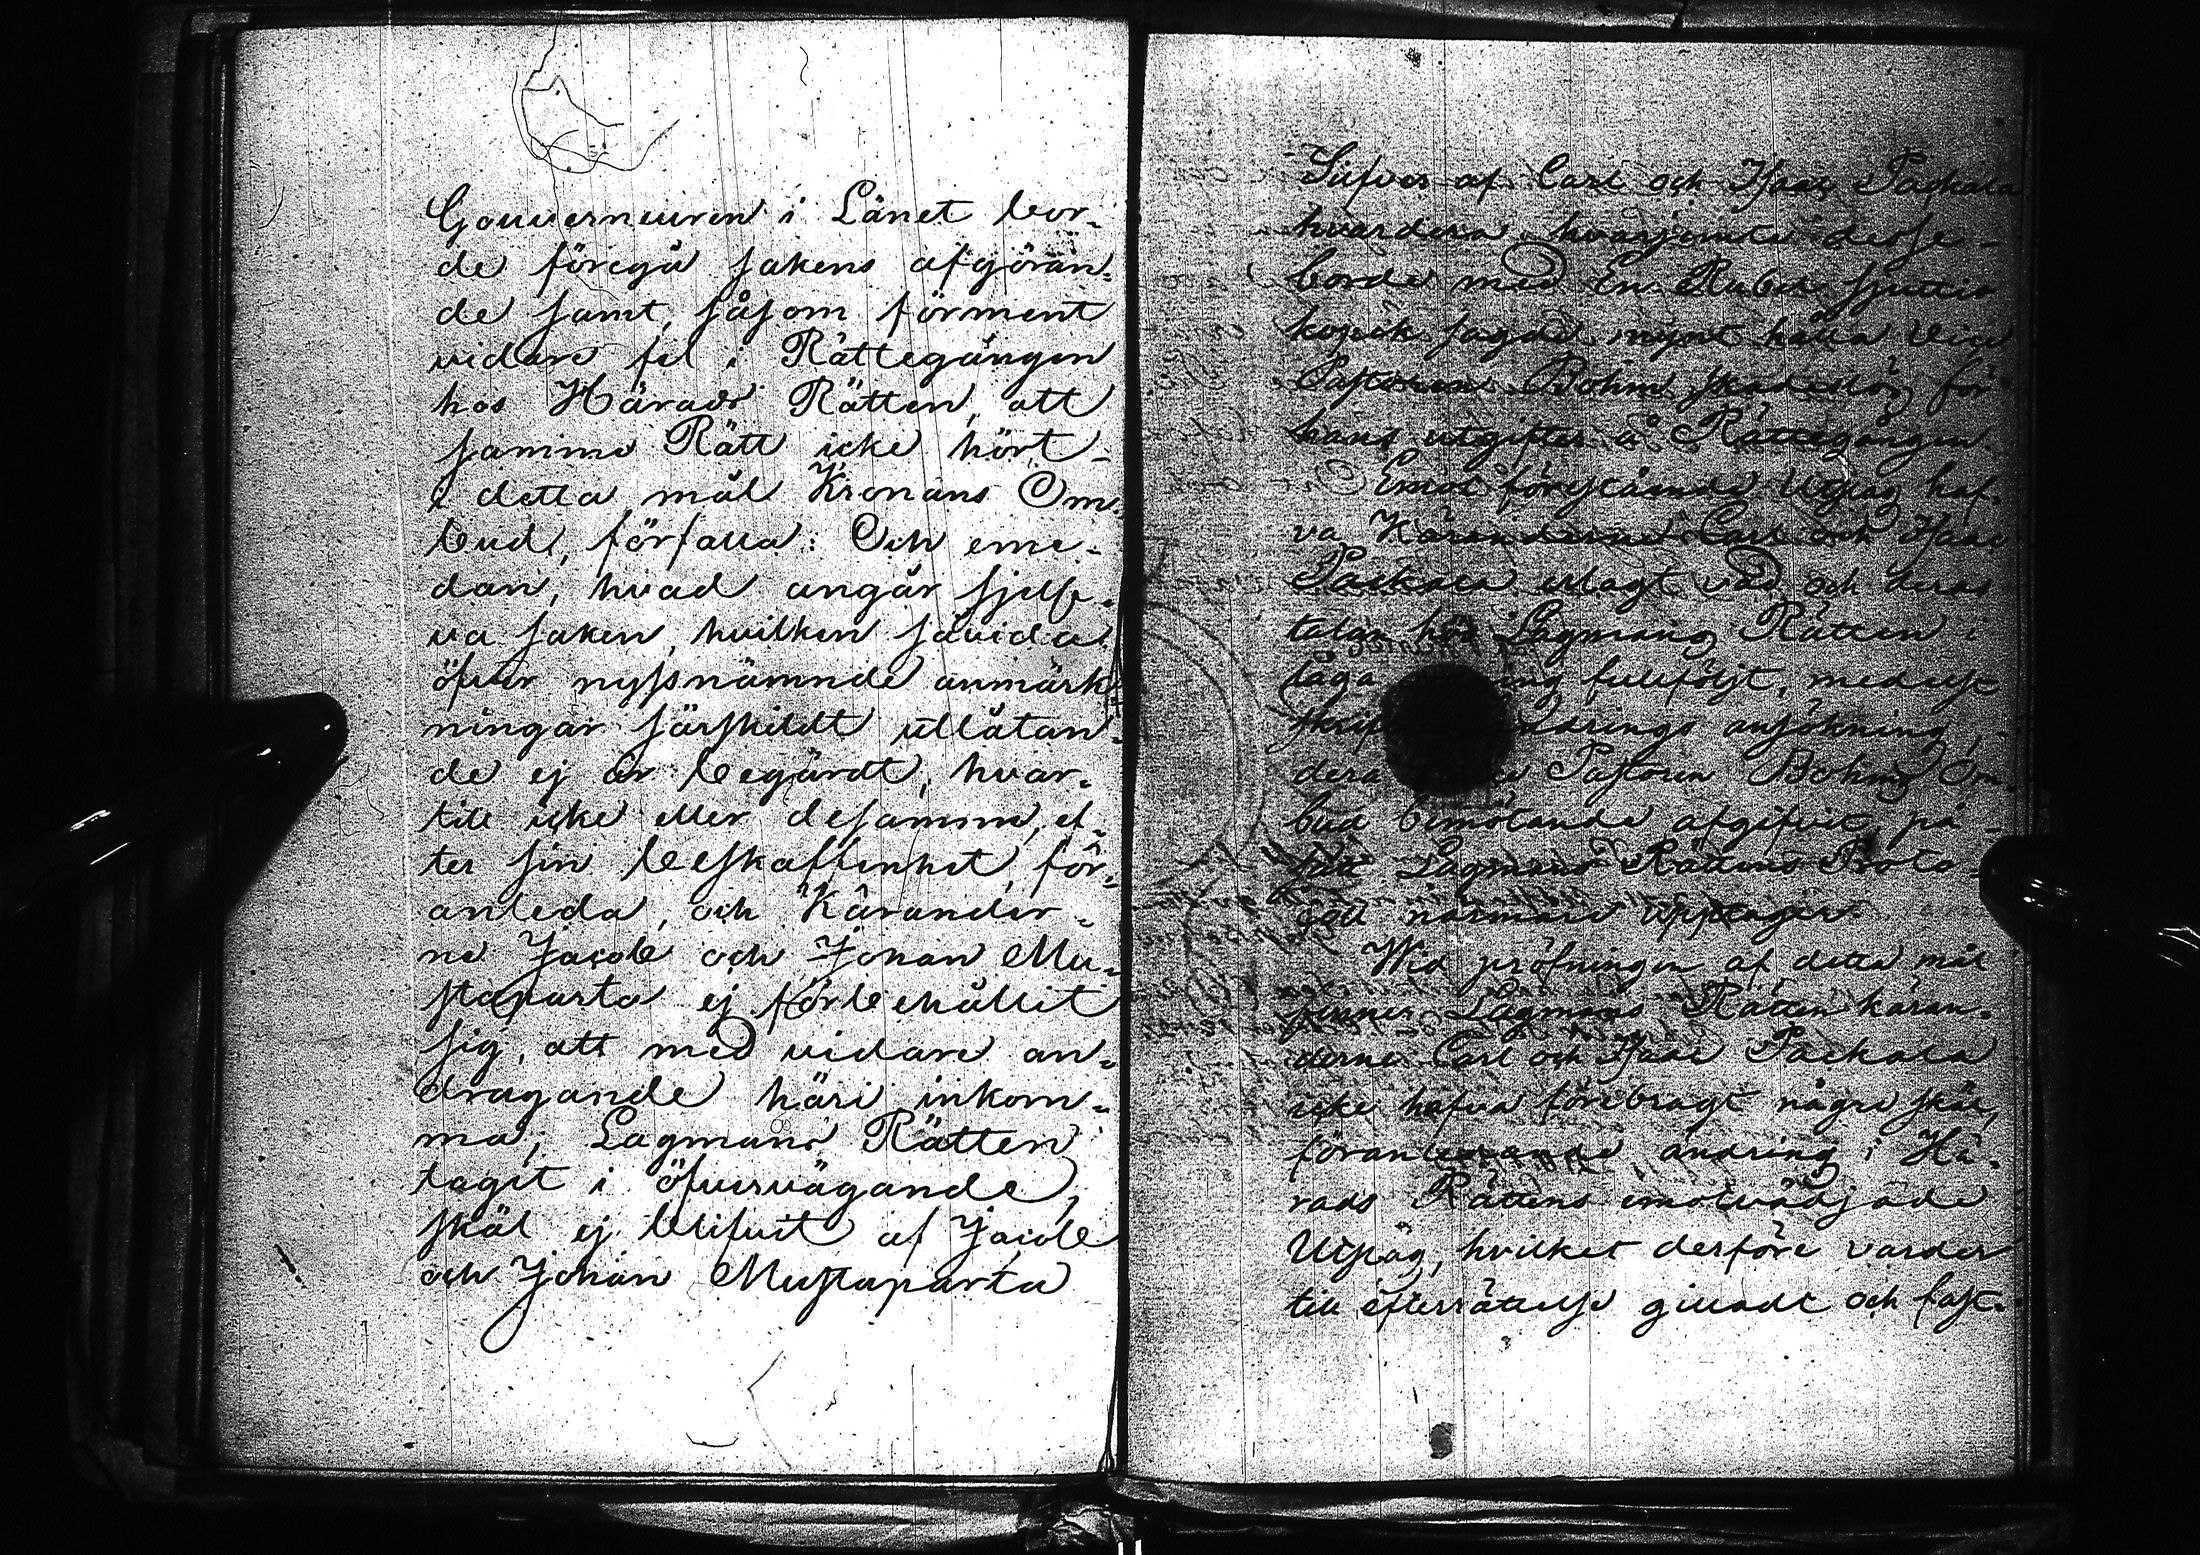 Gouverneuren i Länet bor-
de föregå sakens afgöran-
de samt, såsom förment
vidare fel i Rättegången
hos Härads Rätten, att
samma Rätt icke hört
i detta mål Kronans Om-
bud, förfalla: Och eme-
dan, hvad angår sjelf-
va saken, hvilken såvida
öfver nyssnämnde anmärk-
ningar särskildt utlåtan-
de ej är begärdt, hvar-
till icke eller desamma, ef-
ter sin beskaffenhet, för-
anleda, och Kärander-
ne Jacob och Johan Mu-
staparta ej förbehållit
sig, att med vidare an-
dragande häri inkom-
ma; Lagmans Rätten
tagit i öfvervägande,
skäl ej blifvit af Jacob
och Johan Mustaparta
Silfver af Carl och Isaac Packala
hvardera, hvarjemte desse
borde med En Rubel sjuttio
kopek sagde mynt hålla Vice
Pastoren Bohm skadeslös för
hans utgifter å Rättegången.
Emot förestående Utslag haf-
va Käranderne Carl och Isaac
Packala erlagt vad och deras
talan hos Lagmans Rätten i
laga fullföljt, medelst
ändrings ansökning,
Pastoren Bohms Om-
bud bemötande afgifvit, på
sätt Lagmans Rättens Proto-
coll närmare upptager.
Wid pröfningen af detta mål
finner Lagmans Rätten käran-
derne Carl och Isaac Packala
icke hafva förebragt några skäl,
föranledande ändring i Hä-
rads Rättens emotvädjade
Utslag, hvilket derföre varder
till efterrättelse gilladt och fast-